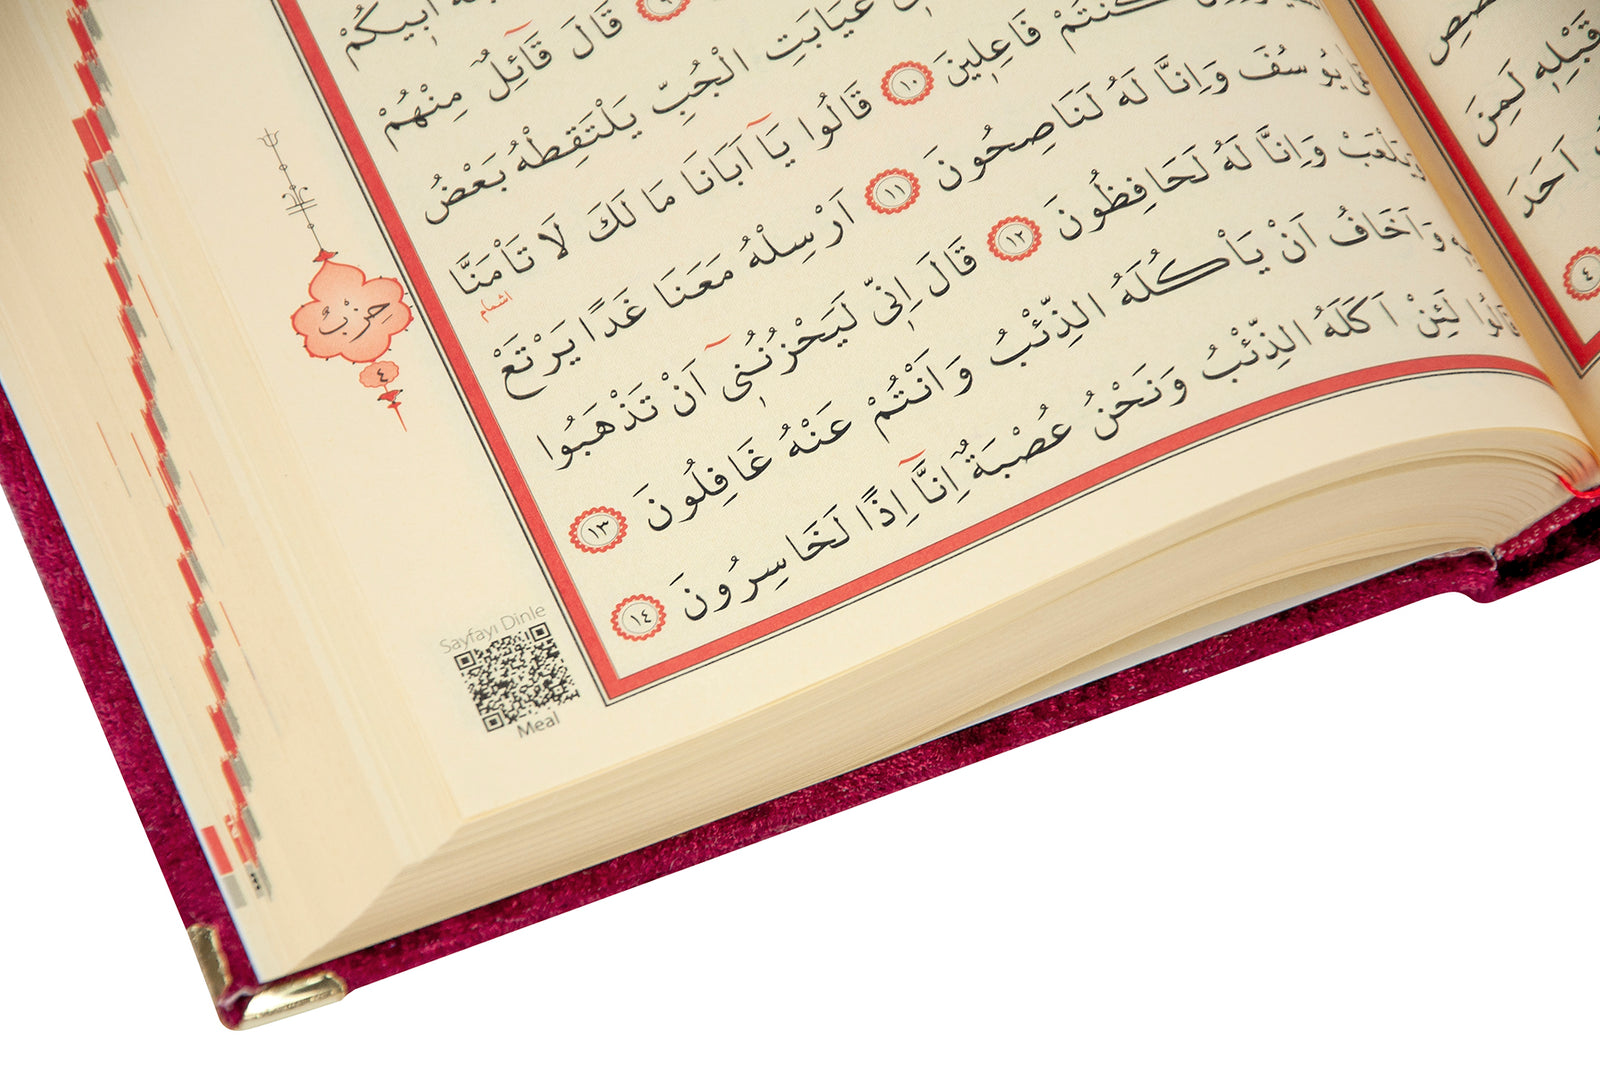 ابيكم
قَالَ قَٓائِلٌ مِنْهُمْ
غَيَابَتِ الْجُبِّ يَلْتَقِطْهُ بَعْضُ
كُنْتُمْ فَاعِل۪ينَ ﴿١٠﴾ قَالُوا يَٓا اَبَانَا مَا لَكَ لَا تَأْمَنَّا
اشمام
عَلٰى يُوسُفَ وَاِنَّا لَهُ لَنَاصِحُونَ ﴿١١﴾ اَرْسِلْهُ مَعَنَا غَدًا يَرْتَعْ
وَيَلْعَبْ وَاِنَّا لَهُ لَحَافِظُونَ ﴿١٢﴾ قَالَ اِنّ۪ي لَيَحْزُنُن۪ٓي اَنْ تَذْهَبُوا
بِه۪ وَاَخَافُ اَنْ يَأْكُلَهُ الذِّئْبُ وَاَنْتُمْ عَنْهُ غَافِلُونَ ﴿١٣﴾
قَالُوا لَئِنْ اَكَلَهُ الذِّئْبُ وَنَحْنُ عُصْبَةٌ اِنَّٓا اِذًا لَخَاسِرُونَ ﴿١٤﴾
حِزْبٌ
٤
Sayfayı Dinle
Meal
قَبْلِه۪ لَمِنَ
اَحَدَ
٤